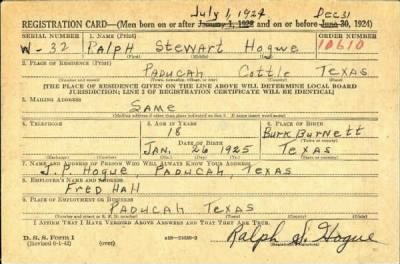 July 1, 1924 Dec 31
REGISTRATION CARD—(Men born on or after January 1, 1922 and on or before June 30, 1924)
SERIAL NUMBER 1. NAME (Print) ORDER NUMBER
W-32 Ralph Stewart Hogue 10610
2. PLACE OF RESIDENCE (Print)
Paducah Cottle Texas
[THE PLACE OF RESIDENCE GIVEN ON THE LINE ABOVE WILL DETERMINE LOCAL BOARD
JURISDICTION; LINE 2 OF REGISTRATION CERTIFICATE WILL BE IDENTICAL]
3. MAILING ADDRESS
Same
[Mailing address if other than place indicated on line 2. If same insert word same]
4. TELEPHONE 5. AGE IN YEARS 6. PLACE OF BIRTH
18 Burkburnett
DATE OF BIRTH
Jan. 26 1925 Texas
7. NAME AND ADDRESS OF PERSON WHO WILL ALWAYS KNOW YOUR ADDRESS
J.P. Hogue, Paducah, Texas
8. EMPLOYER'S NAME AND ADDRESS
Fred Hall
9. PLACE OF EMPLOYMENT OR BUSINESS
Paducah Texas
I AFFIRM THAT I HAVE VERIFIED ABOVE ANSWERS AND THAT THEY ARE TRUE.
D. S. S. Form 1
(Revised 6-1-42) (over) Ralph S. Hogue